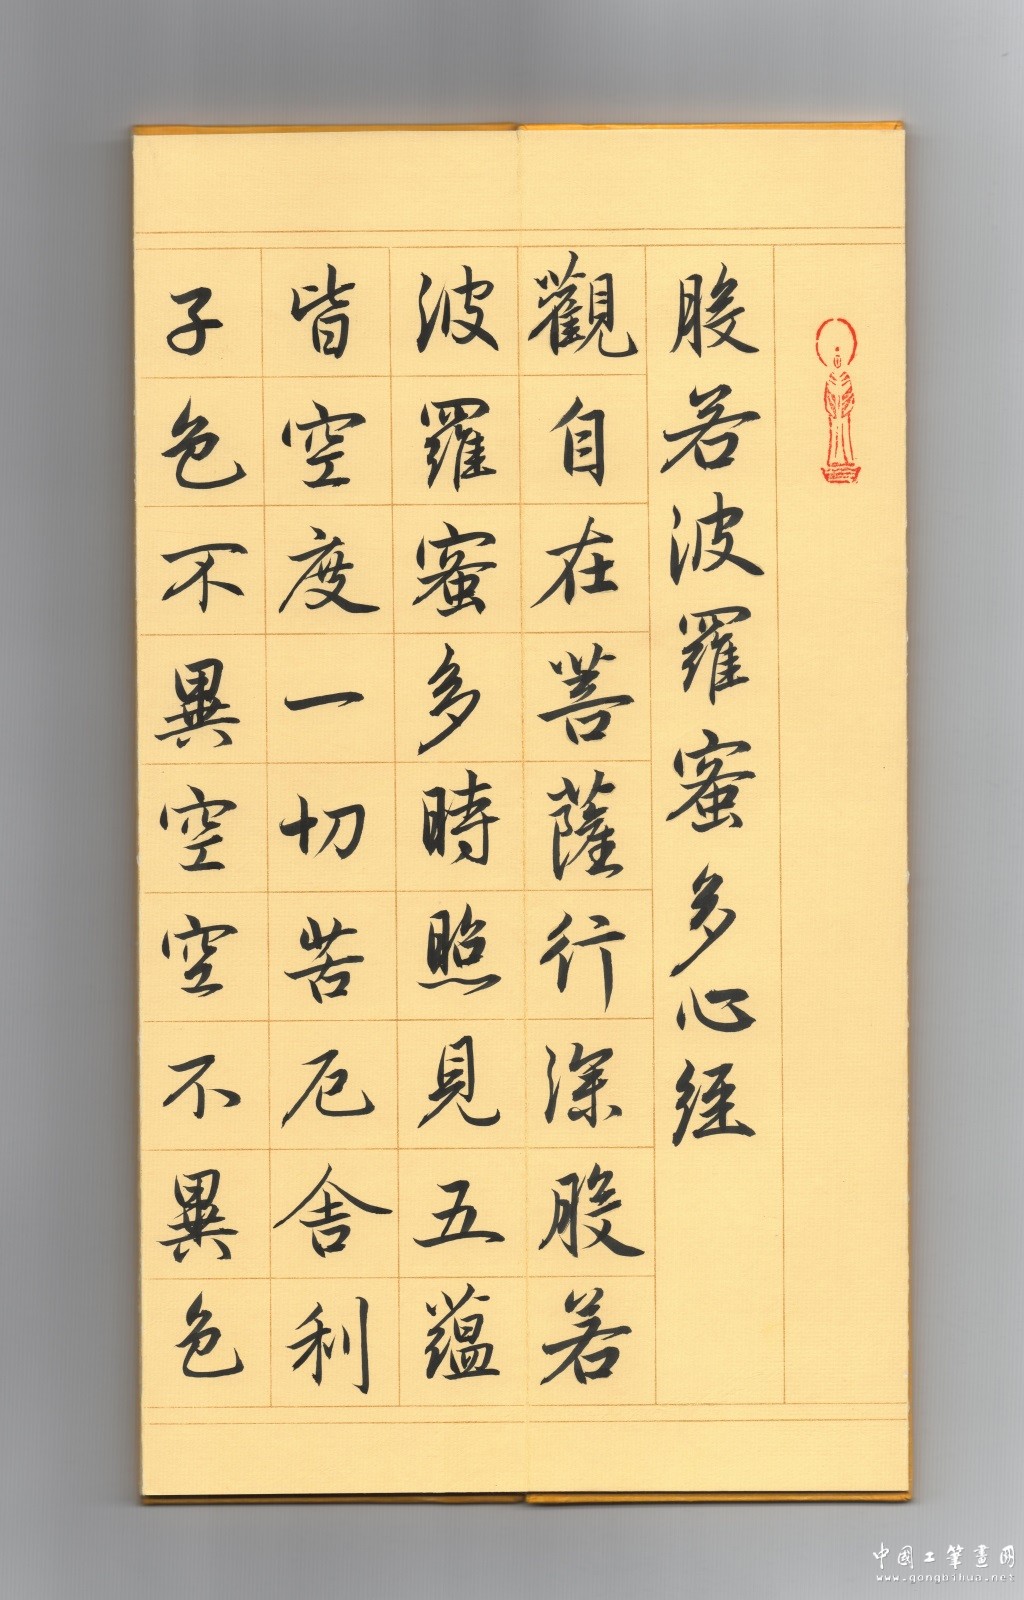 般若波羅蜜多心經
觀自在菩薩行深般若
波羅蜜多時照見五蘊
皆空度一切苦厄舍利
子色不異空空不異色
中国工筆畫网
www.gongbihua.net